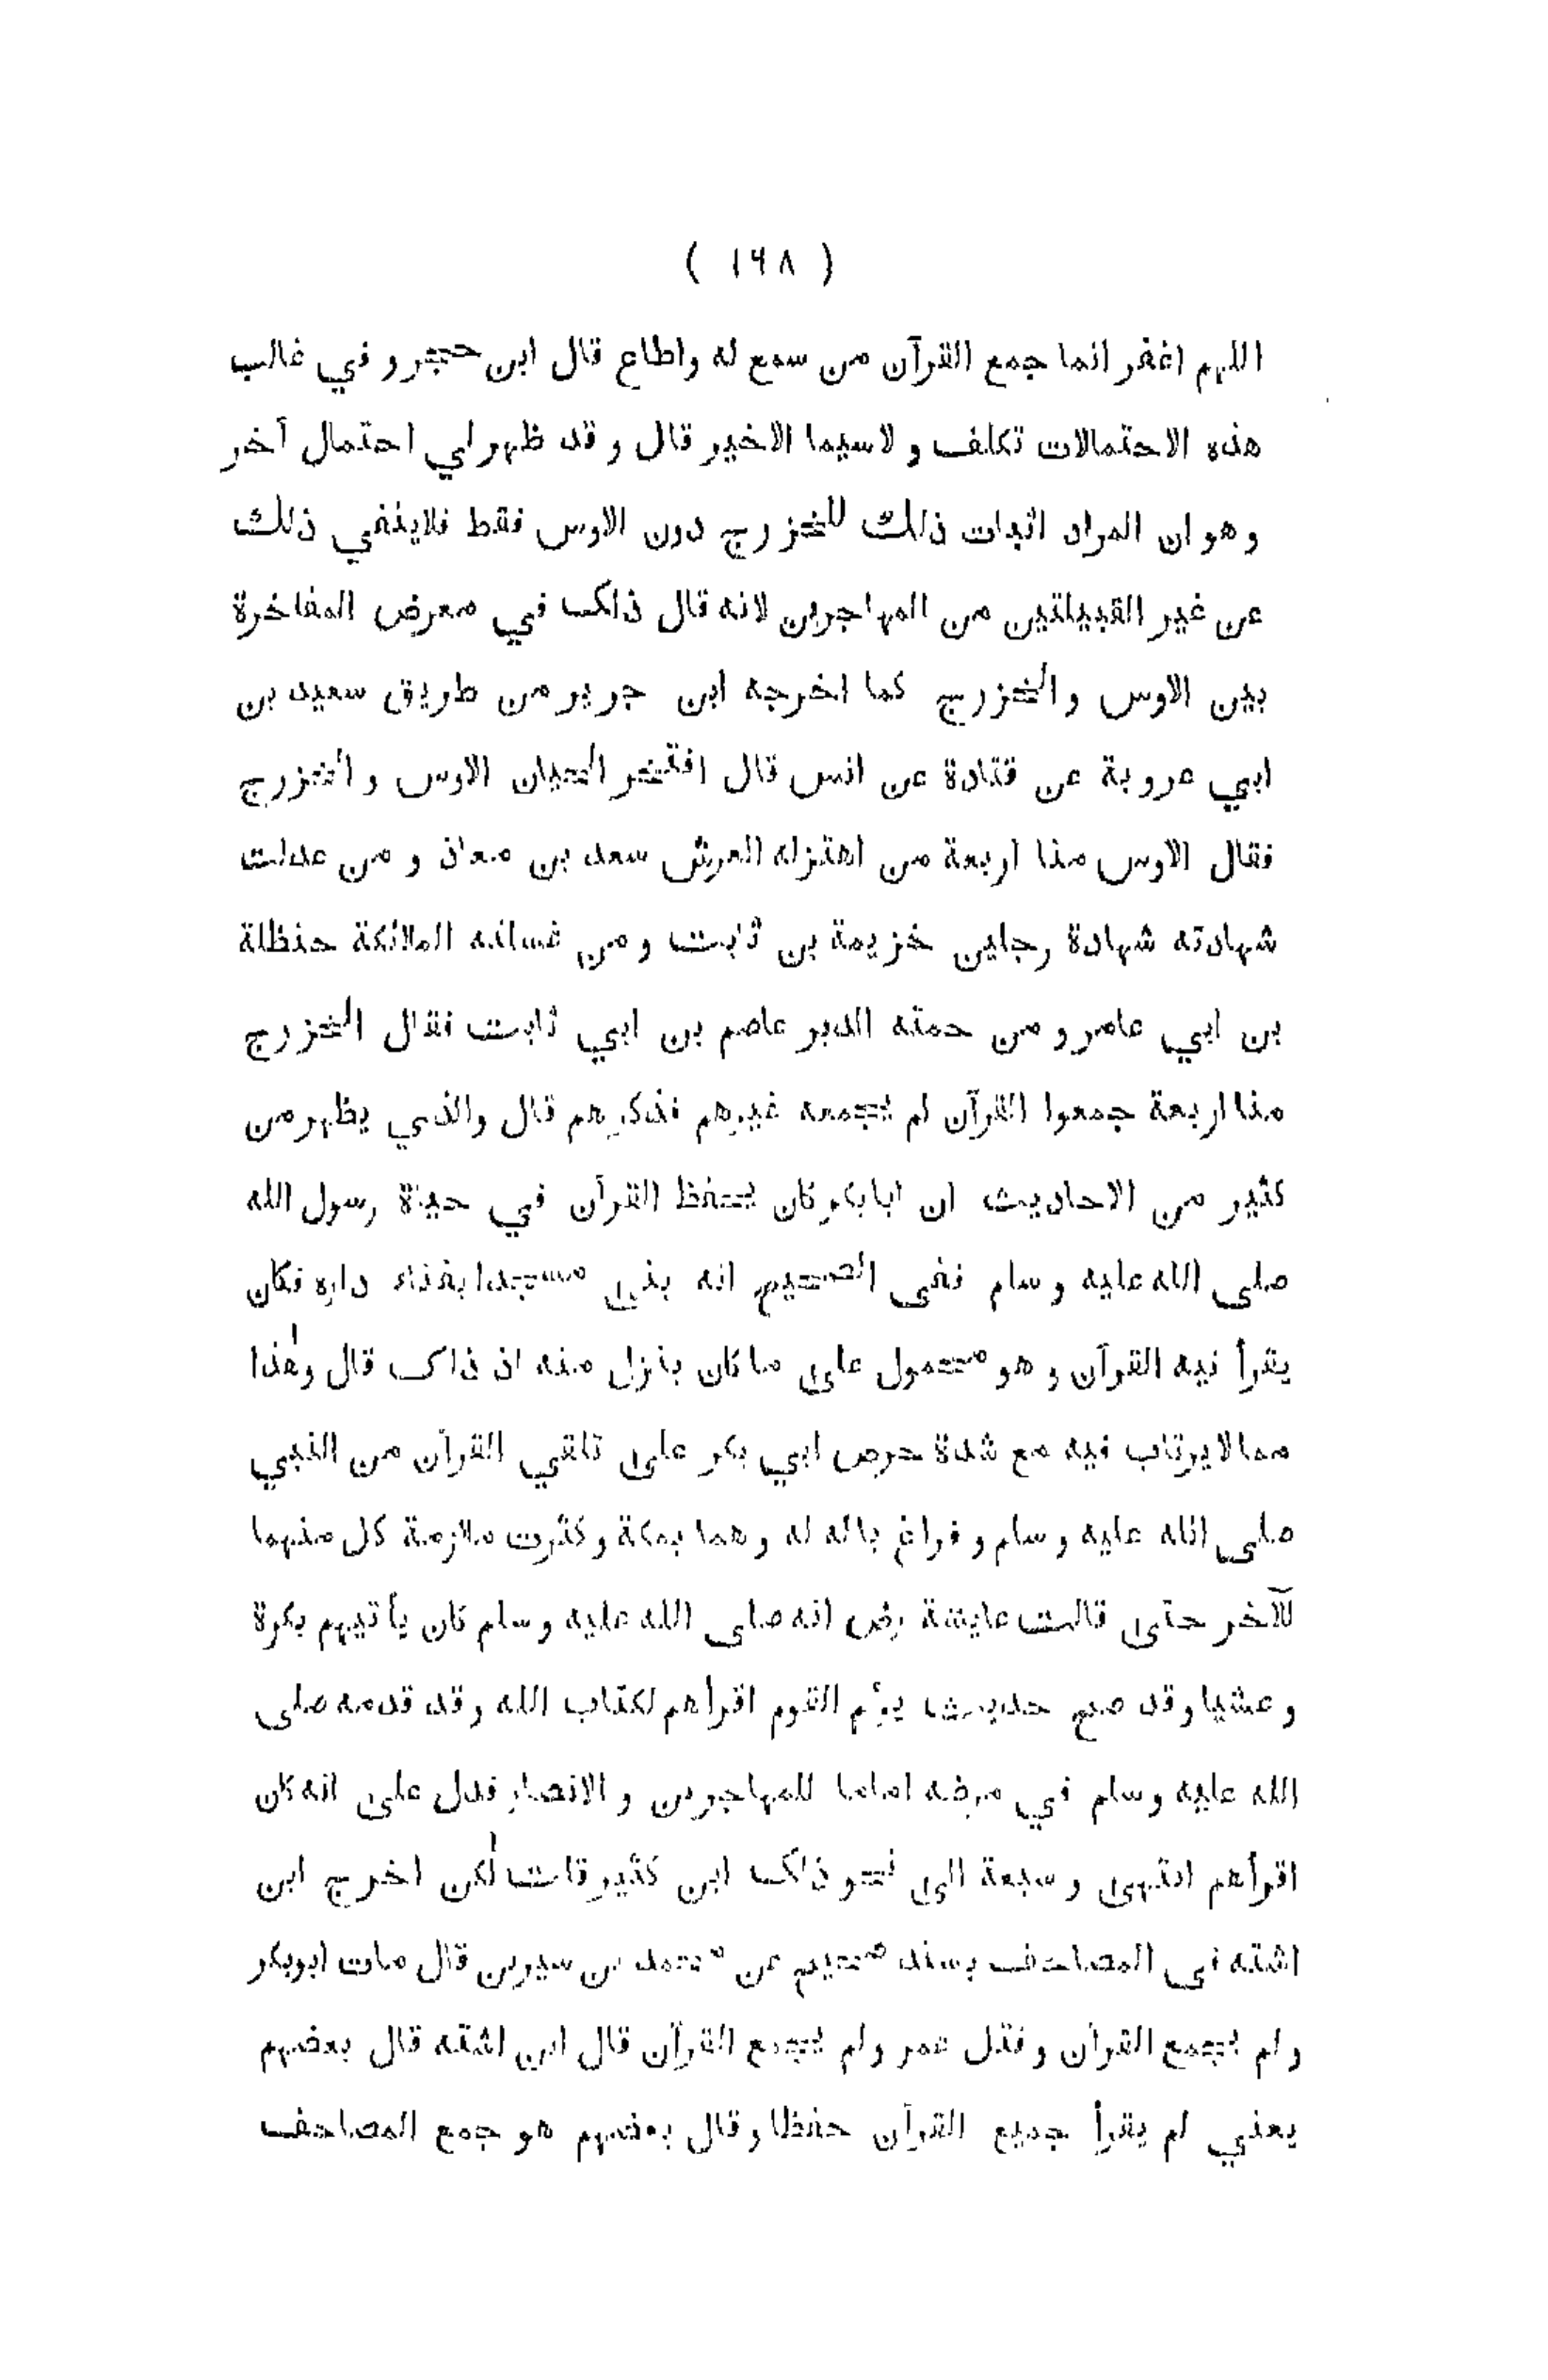 ( ١٦٨ )
اللهم اغفر انما جمع القرآن من سمع له واطاع قال ابن حجر و في غالب
هذه الاحتمالات تكلف و لا سيما الاخير قال و قد ظهر لي احتمال آخر
و هو ان المراد اثبات ذلك للخزرج دون الاوس فقط فلا ينفي ذلك
عن غير القبيلتين من المهاجرين لانه قال ذلك في معرض المفاخرة
بين الاوس و الخزرج كما اخرجه ابن جرير من طريق سعيد بن
ابي عروبة عن قتادة عن انس قال افتخر الحيان الاوس و الخزرج
فقال الاوس منا اربعة من اهتزله العرش سعد بن معاذ و من عدلت
شهادته شهادة رجلين خزيمة بن ثابت و من غسلته الملائكة حنظلة
بن ابي عامر و من حمته الدبر عاصم بن ابي ثابت فقال الخزرج
منا اربعة جمعوا القرآن لم يجمعه غيرهم فذكرهم قال والذي يظهر من
كثير من الاحاديث ان ابا بكر كان يحفظ القرآن في حياة رسول الله
صلى الله عليه و سلم ففى الصحيح انه بنى مسجدا بفناء داره فكان
يقرأ فيه القرآن و هو محمول على ما كان ينزل منه اذ ذاك قال وهذا
مما لا يرتاب فيه مع شدة حرص ابي بكر على تلقي القرآن من النبي
صلى الله عليه و سلم و فراغ باله له و هما بمكة و كثرت ملازمة كل منهما
للآخر حتى قالت عايشة رض انه صلى الله عليه و سلم كان يأتيهم بكرة
و عشيا و قد صح حديث يؤم القوم اقرأهم لكتاب الله و قد قدمه صلى
الله عليه و سلم في مرضه اماما للمهاجرين و الانصار فدل على انه كان
اقرأهم انتهى و سبعة الى نحو ذلك ابن كثير قلت لكن اخرج ابن
اشته فى المصاحف بسند صحيح عن محمد بن سيرين قال مات ابوبكر
و لم يجمع القرآن و قتل عمر و لم يجمع القرآن قال ابن اشته قال بعضهم
يعني لم يقرأ جميع القرآن حفظا و قال بعضهم هو جمع المصاحف